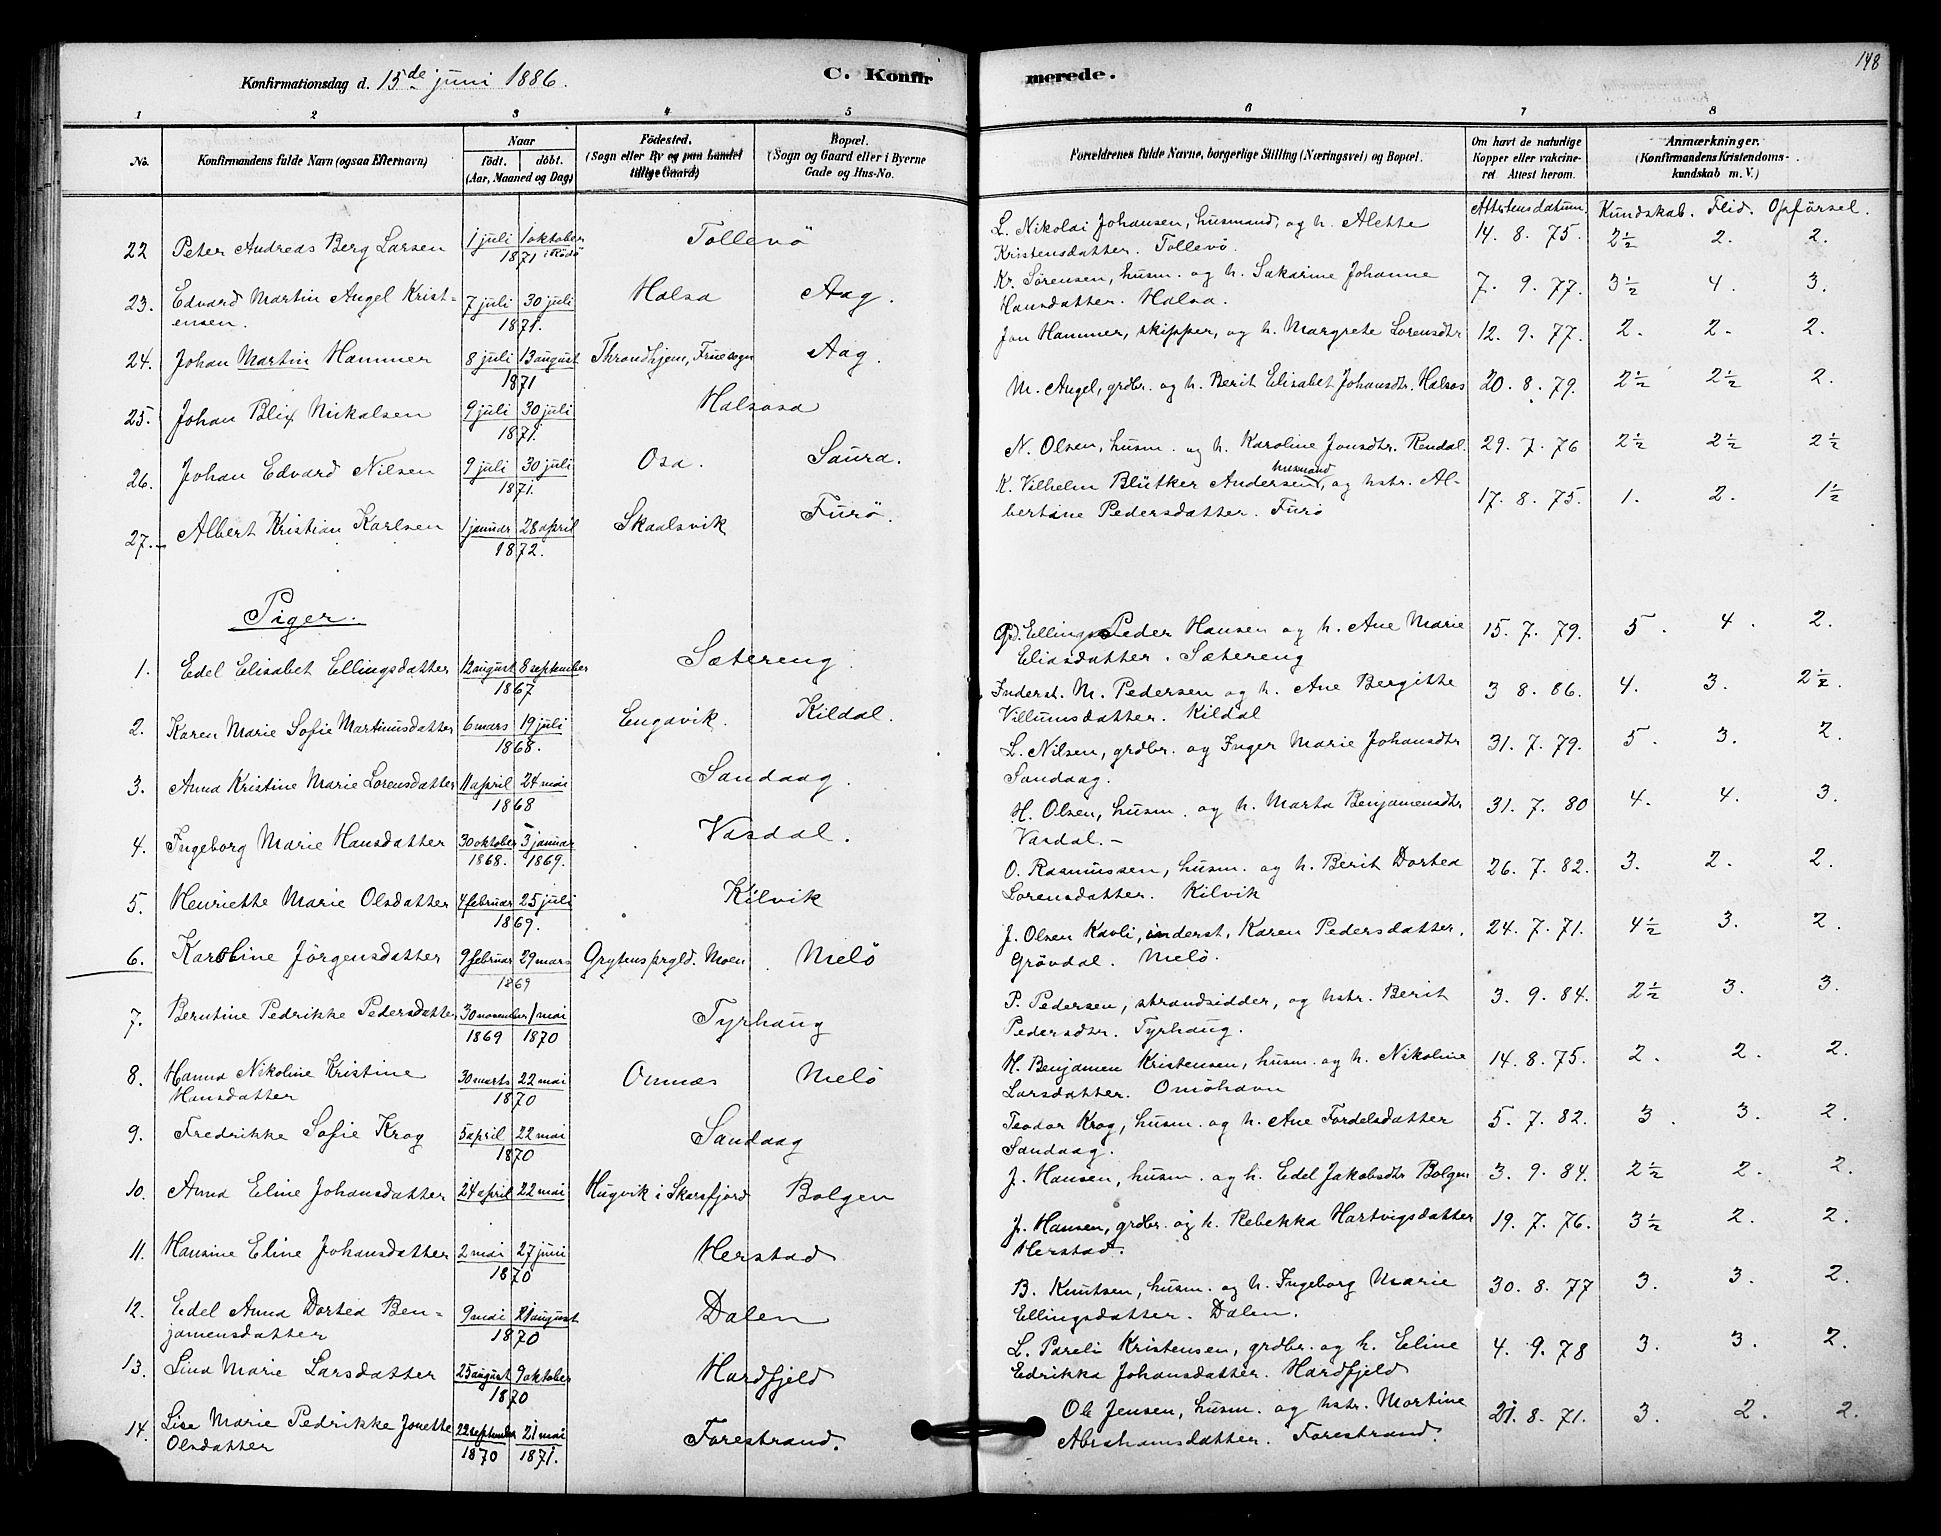 148
Konfirmationsdag d. 15de juni 1886.
C. Konfir
merede.
1 2 3 4 5 6 7 8
No. Konfirmandens fulde Navn (ogsaa Efternavn)
Naar
födt. döbt.
(Aar, Maaned og Dag)
Födested.
(Sogn eller By og paa Landet
tillige Gaard)
Bopæl.
(Sogn og Gaard eller i Byerne
Gade og Hus-No.
Forældrenes fulde Navne, borgerlige Stilling (Næringsvei) og Bopæl.
Om havt de naturlige
Kopper eller vakcine-
ret Attest herom.
Anmærkninger.
(Konfirmandens Kristendoms-
kundskab m. V.)
Attestens datum. Kundskab. Flid. Opförsel.
22 Peter Andreas Berg Larsen 1 juli 1 oktober Tollevö L. Nikolai Johansen, husmand, og h. Alette 14. 8. 75. 2½ 2. 2.
1871 i Rödö Kristensdatter. Tollevö.
23. Edvard Martin Angel Krist- 7 juli 30 juli Halsa Aag. Kr. Sørensen, husm. og h. Sakarine Johanne 7. 9. 77. 3½ 4. 3.
ensen. 1871. Hansdatter. Halsa.
24. Johan Martin Hammer 8 juli 13 august Throndhjem, Fruesogn Aag. Jon Hammer, skipper, og h. Margrete Lorensdtr 12. 9. 77. 2. 2. 2.
1871
25. Johan Blix Nickalsen 9 juli 30 juli Halsosa M. Angel, grdbr. og h. Berit Elisabet Johansdtr. Halsos 20. 8. 79. 2½ 2½ 2.
1871.
26. Johan Edvard Nilsen 9 juli 30 juli Osa. Saura. N. Olsen, husm. og h. Karoline Jonsdtr. Rendal. 29. 7. 76 2½ 2½ 2½
1871.
27. Albert Kristian Karlsen 1 januar 28 april Skaalsvik Furö. K. Vilhelm Blütker Andersen, husmand, og hstr. Al- 17. 8. 75. 1. 2. 1½
1872. bertine Pedersdatter. Furö
Piger.
1. Edel Elisabet Ellingsdatter 12 august 8 september Sætereng. Ellings Peder Hansen og h. Ane Marie 15. 7. 79. 5. 4. 2.
1867 Eliasdatter. Sætereng
2. Karen Marie Sofie Martinusdatter 6 mars 19 juli Engavik. Kildal. Inderst. M. Pedersen og h. Ane Bergitte 3 8. 86. 4. 3. 2½.
1868. Villumsdatter. Kildal
3. Anna Kristine Marie Lorensdatter 11 april 24 mai Sandaag. L. Nilsen, grdbr. og Inger Marie Johansdtr 31. 7. 79. 5. 3. 2.
1868 Sandaag.
4. Ingeborg Marie Hansdatter 30 oktober 3 januar Vasdal. H. Olsen, husm. og h. Marta Benjamensdtr 31. 7. 80 4. 4. 3.
1868. 1869. Vasdal. -
5. Henriette Marie Olsdatter 4 februar 25 juli Kilvik O. Rasmussen, husm. og h. Berit Dortea 26. 7. 82. 3. 2. 2.
1869. Lorensdatter. Kilvik
6. Karoline Jörgensdatter 9 februar 29 mars Grytens prgld. Moen Melö J. Olsen Kavli, inderst, Karen Pedersdatter. 24. 7. 71. 4½ 3. 2.
1869 Grövdal. Melö.
7. Berntine Pedrikke Pedersdatter 30 november 1 mai Tyrhaug P. Pedersen, strandsidder, og hstr. Berit 3. 9. 84. 2½ 3. 3.
1869 1870 Pedersdtr. Tyrhaug.
8. Hanna Nikoline Kristine 30 marts 22 mai Onnæs Melö H. Benjamen Kristensen, husm. og h. Nikoline 14. 8. 75. 2. 2. 2.
Hansdatter 1870 Larsdatter. Omöhavn
9. Fredrikke Sofie Krog 5 april 22 mai Sandaag Teodor Krog, husm. og h. Ane Fordelsdatter 5. 7. 82. 3. 3. 2.
1870 Sandaag.
10. Anna Eline Johansdatter 24 april 22 mai Hugvik i Skarsfjord Bolgen J. Hansen, husm. og h. Edel Jakobsdtr Bolgen 3. 9. 84. 2½ 2. 2.
11. Hansine Eline Johansdatter 2 mai 27 juni Herstad J. Hansen, grdbr. og h. Rebekka Hartvigsdatter 19. 7. 76. 3½ 2. 2.
1870 Herstad.
12. Edel Anna Dortea Ben- 9 mai 21 august Dalen B. Knutsen, husm. og h. Ingeborg Marie 30. 8. 77 3. 3. 2.
jamensdatter 1870 Ellingsdatter. Dalen.
13. Lina Marie Larsdatter 25 august 9 oktober Hardfjeld L. Pareli Kristensen, grdbr. og h. Eline 4. 9. 78 3. 3. 2.
1870 Edrikka Johansdatter. Hardfjeld
14. Lise Marie Pedrikke Jonette 22 september 21 mai Forestrand. Ole Jensen, husm. og hstr. Martine 21. 8. 71. 3. 2. 2.
Olsdatter 1870 1871. Abrahamsdatter. Forestrand.